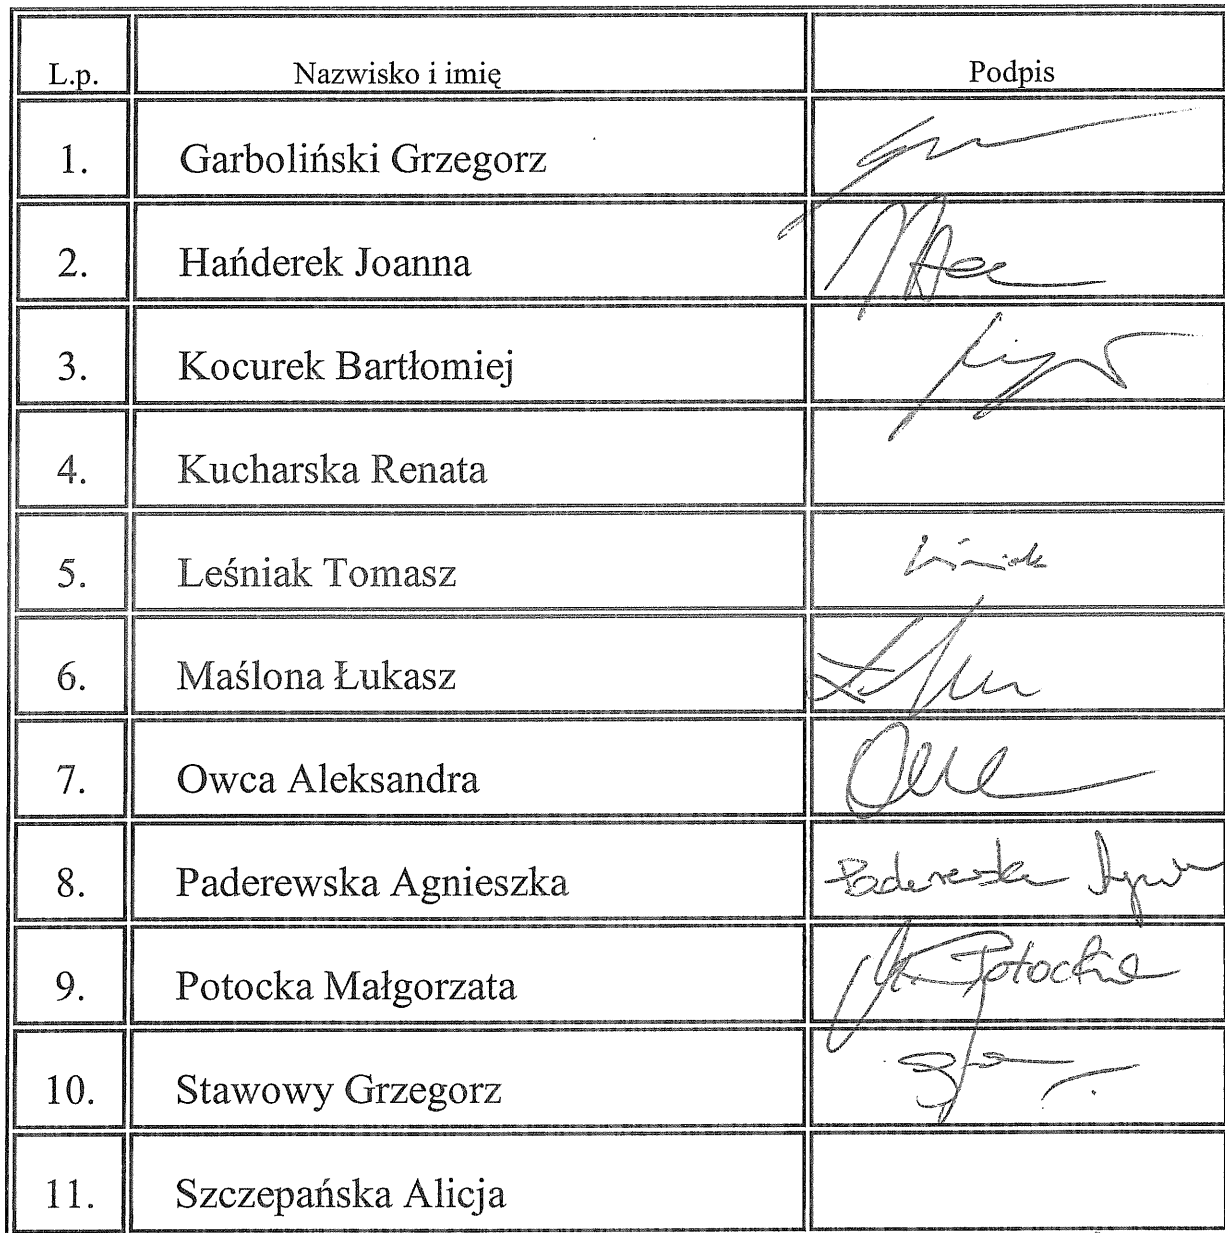 L.p. Nazwisko i imię Podpis
1. Garboliński Grzegorz
2. Hańderek Joanna
3. Kocurek Bartłomiej
4. Kucharska Renata
5. Leśniak Tomasz Leśniak
6. Maślona Łukasz
7. Owca Aleksandra
8. Paderewska Agnieszka Paderewska
9. Potocka Małgorzata M. Potocka
10. Stawowy Grzegorz
11. Szczepańska Alicja